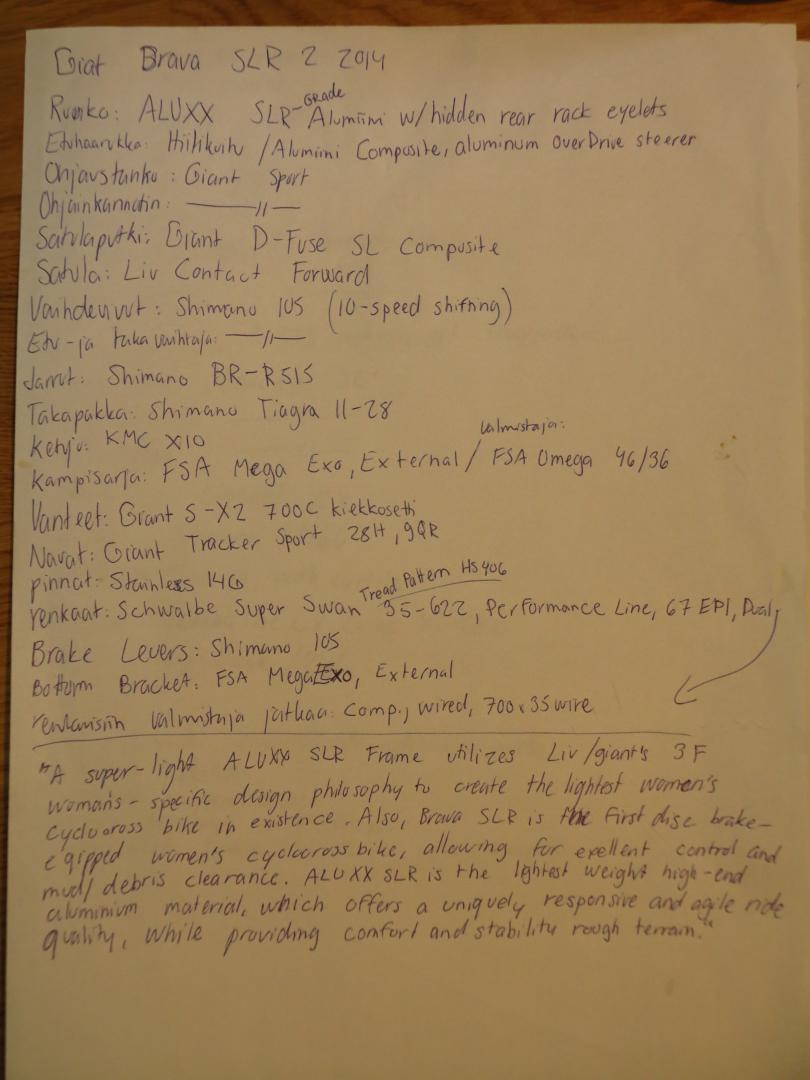 Giat Brava SLR 2 2014
Runko: ALUXX SLR-GRADE Alumiini w/hidden rear rack eyelets
Etuhaarukka: Hiilikuitu / Alumiini Composite, aluminum OverDrive steerer
Ohjaustanko: Giant Sport
Ohjainkannatin: —〃—
Satulaputki: Giant D-Fuse SL Composite
Satula: Liv Contact Forward
Vaihdevivut: Shimano 105 (10-speed shifting)
Etu- ja takavaihtaja: —〃—
Jarrut: Shimano BR-R515
Takapakka: Shimano Tiagra 11-28
Ketju: KMC X10
Kampisarja: FSA Mega Exo, External / valmistaja: FSA Omega 46/36
Vanteet: Giant S-X2 700C kiekkosetti
Navat: Giant Tracker Sport 28H, 9QR
pinnat: Stainless 14G
renkaat: Schwalbe Super Swan Tread Pattern HS406 35-622, Performance Line, 67 EPI, Dual,
Brake Levers: Shimano 105
Bottom Bracket: FSA MegaExo, External
renkaisiin valmistaja jatkaa: Comp., wired, 700x35 wire
"A super-light ALUXX SLR Frame utilizes Liv/giant's 3F
womans-specific design philosophy to create the lightest women's
cyclocross bike in existence. Also, Brava SLR is the first disc brake-
eqipped women's cyclocross bike, allowing for exellent control and
mud/debris clearance. ALUXX SLR is the lightest weight high-end
aluminium material, which offers a uniquely responsive and agile ride
quality, while providing comfort and stability rough terrain."